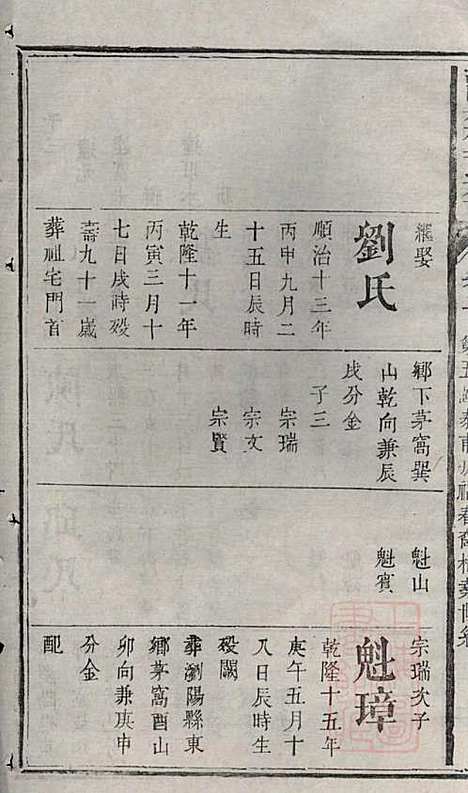 繼娶
劉氏
順治十三年
丙申九月二
十五日辰時
生
乾隆十一年
丙寅三月十
七日戌時殁
壽九十一歲
葬祖宅門首
鄉下茅窩巽
山乾向兼辰
戌分金
子三
宗瑞
宗文
宗賢
魁山
魁賓
宗瑞次子
魁璋
乾隆十五年
庚午五月十
八日辰時生
殁闕
葬瀏陽縣東
鄉茅窩酉山
卯向兼庚申
分金
配